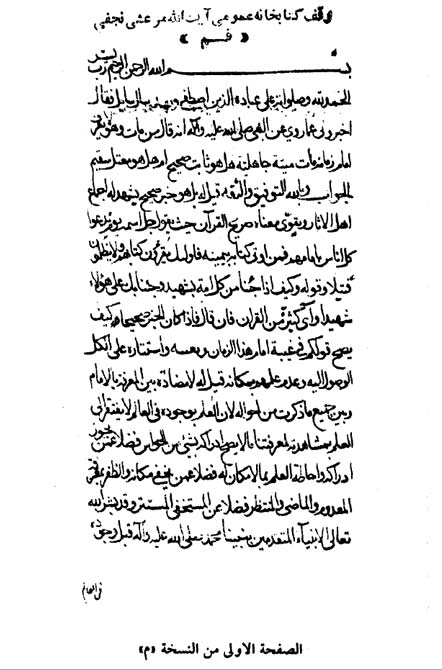 وقف كتابخانه عمومي آيت الله مرعشي نجفي
« قـــم »
بسم الله الرحمن الرحيم رب
الحمد لله وصلواته على عباده الذين اصطفى وبعد سال سايل فقال
اخبروني عما روي عن النبي صلى الله عليه وآله انه قال من مات وهو لا يعرف
امام زمانه مات ميتة جاهلية هل هو ثابت صحيح ام هل هو معتل سقيم
الجواب وبالله التوفيق والثقة قيل له بل هو خبر صحيح يشهد له اجماع
اهل الاثار ويقوى معناه صريح القرآن حيث يقول جل اسمه يوم ندعوا
كل اناس بامامهم فمن اوتى كتابه بيمينه فاولئك يقرؤن كتابهم ولا يظلمون
فتيلا وقوله وكيف اذا جئنا من كل امة بشهيد وجئنا بك على هؤلاء
شهيدا وآي كثيرة من القران فان قال فاذا كان الخبر صحيحا فكيف
يصح قولكم في غيبة امام هذا الزمان وتغيبه واستتاره على الكل
الوصول اليه وعدم علمهم بمكانه قيل له لا مضادة بين المعرفة بالامام
وبين جميع ما ذكرت من احواله لان العلم بوجوده في العالم لا يفتقر الى
العلم بمشاهدته لمعرفتنا ما لا يصح ادراكه بشيء من الحواس فضلا عمن يجوز
ادراكه واحاطة العلم بما لا مكان له فضلا عمن يخفى مكانه والظفر بمعرفة
المعدوم والماضي والمنتظر فضلا عن المستخفى المستتر وقد بشر الله
تعالى الانبياء المتقدمين بنبينا محمد صلى الله عليه وآله قبل وجوده
في العالم
الصفحة الاولى من النسخة «م»